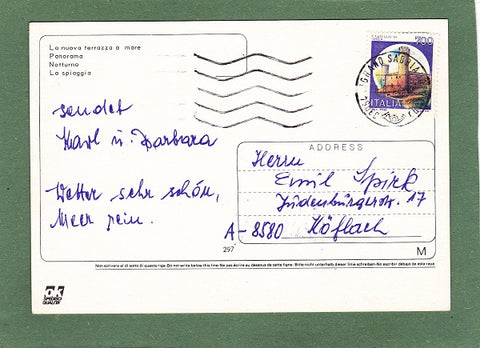 La nuova terrazza a mare
Panorama
Notturno
La spiaggia
sendet
Karl u. Barbara
Wetter sehr schön,
Meer rein.
700
ITALIA
ADDRESS
Herrn
Emil Spirk
Judenburgerstr. 17
A-8580 Köflach
297
M
Non scrivere al di sotto di questa riga-Do not write below this line-Ne pas écrire au dessous de cette ligne-Bitte nicht unterhalb dieser linie schreiben-No escribir debajo de esta raya